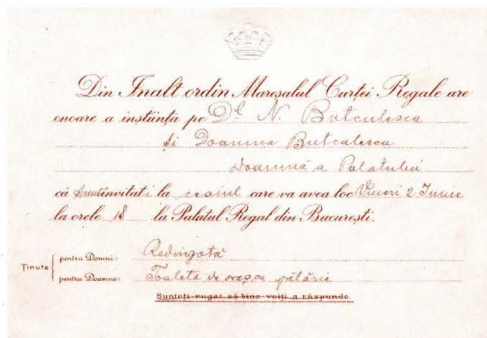 Din Înalt ordin Mareșalul Curței Regale are
onoare a înștiința pe Dl N. Butculescu
și Doamna Butculescu
Doamnă a Palatului
că sunt invitați la ceaiul care va avea loc Vineri 2 Iunie
la orele la Palatul Regal din București.
Ținuta
pentru Domni: Redingotă
pentru Doamne: Toaletă de oraș cu pălărie
Sunteți rugat să bine voiți a răspunde